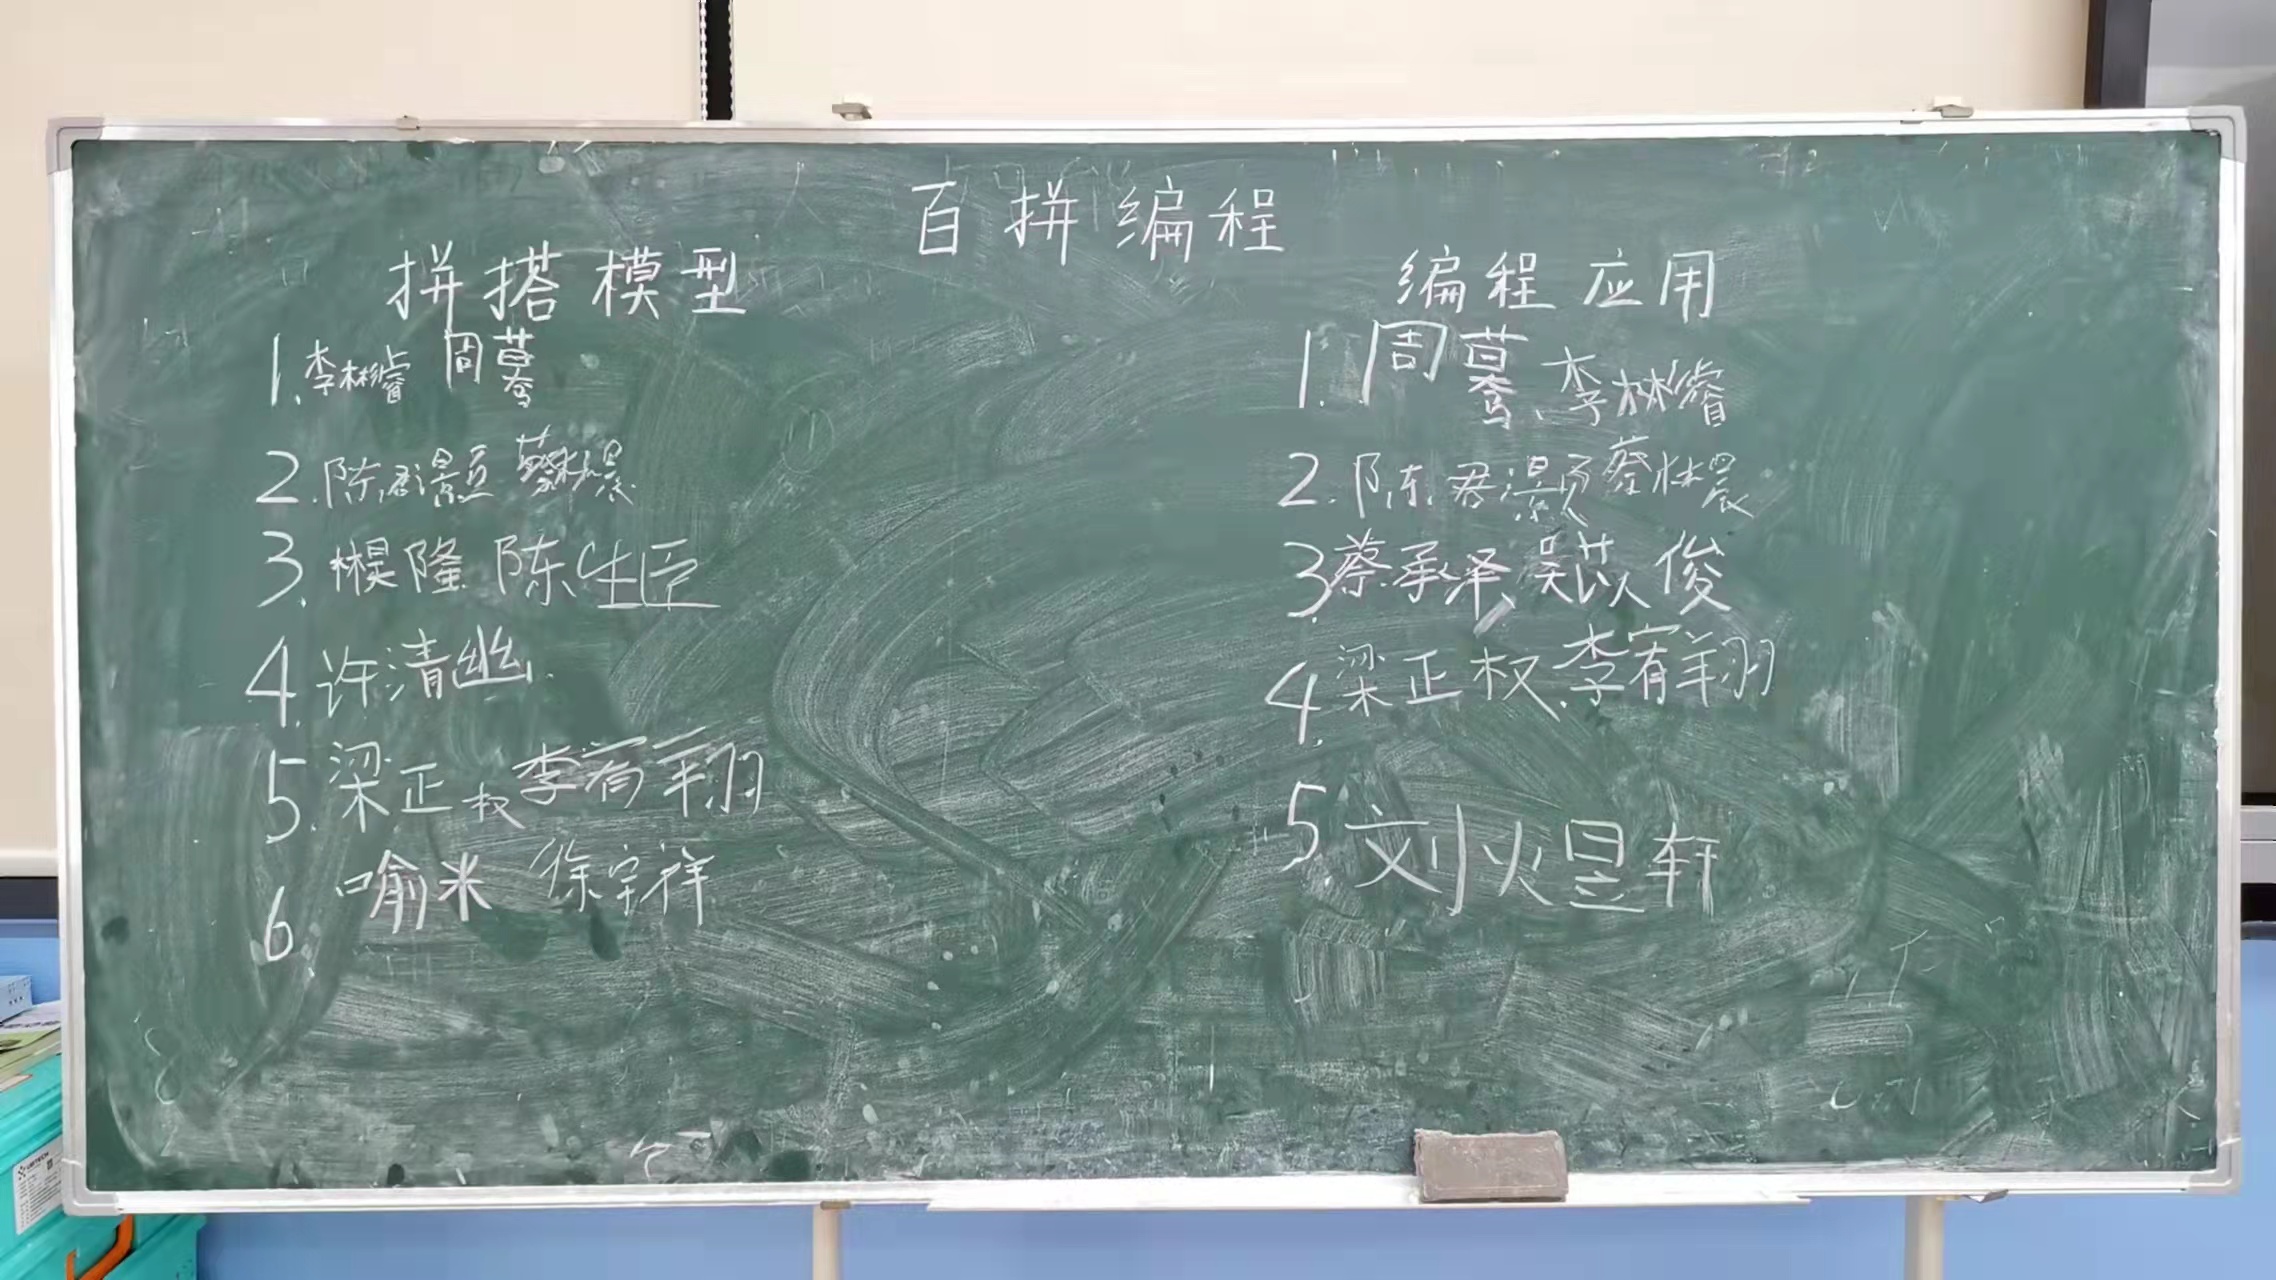 百拼编程
拼搭模型
1.李彬睿 周蓦
2.陈君灏 蔡林晨
3.模隆 陈生臣
4.许清幽
5.梁正权 李宥翔
6 喻米 徐宇祥
编程应用
1.周蓦、李彬睿
2.陈君灏 蔡林晨
3.蔡承泽、吴苡俊
4.梁正权、李宥翔
5 刘火昱轩